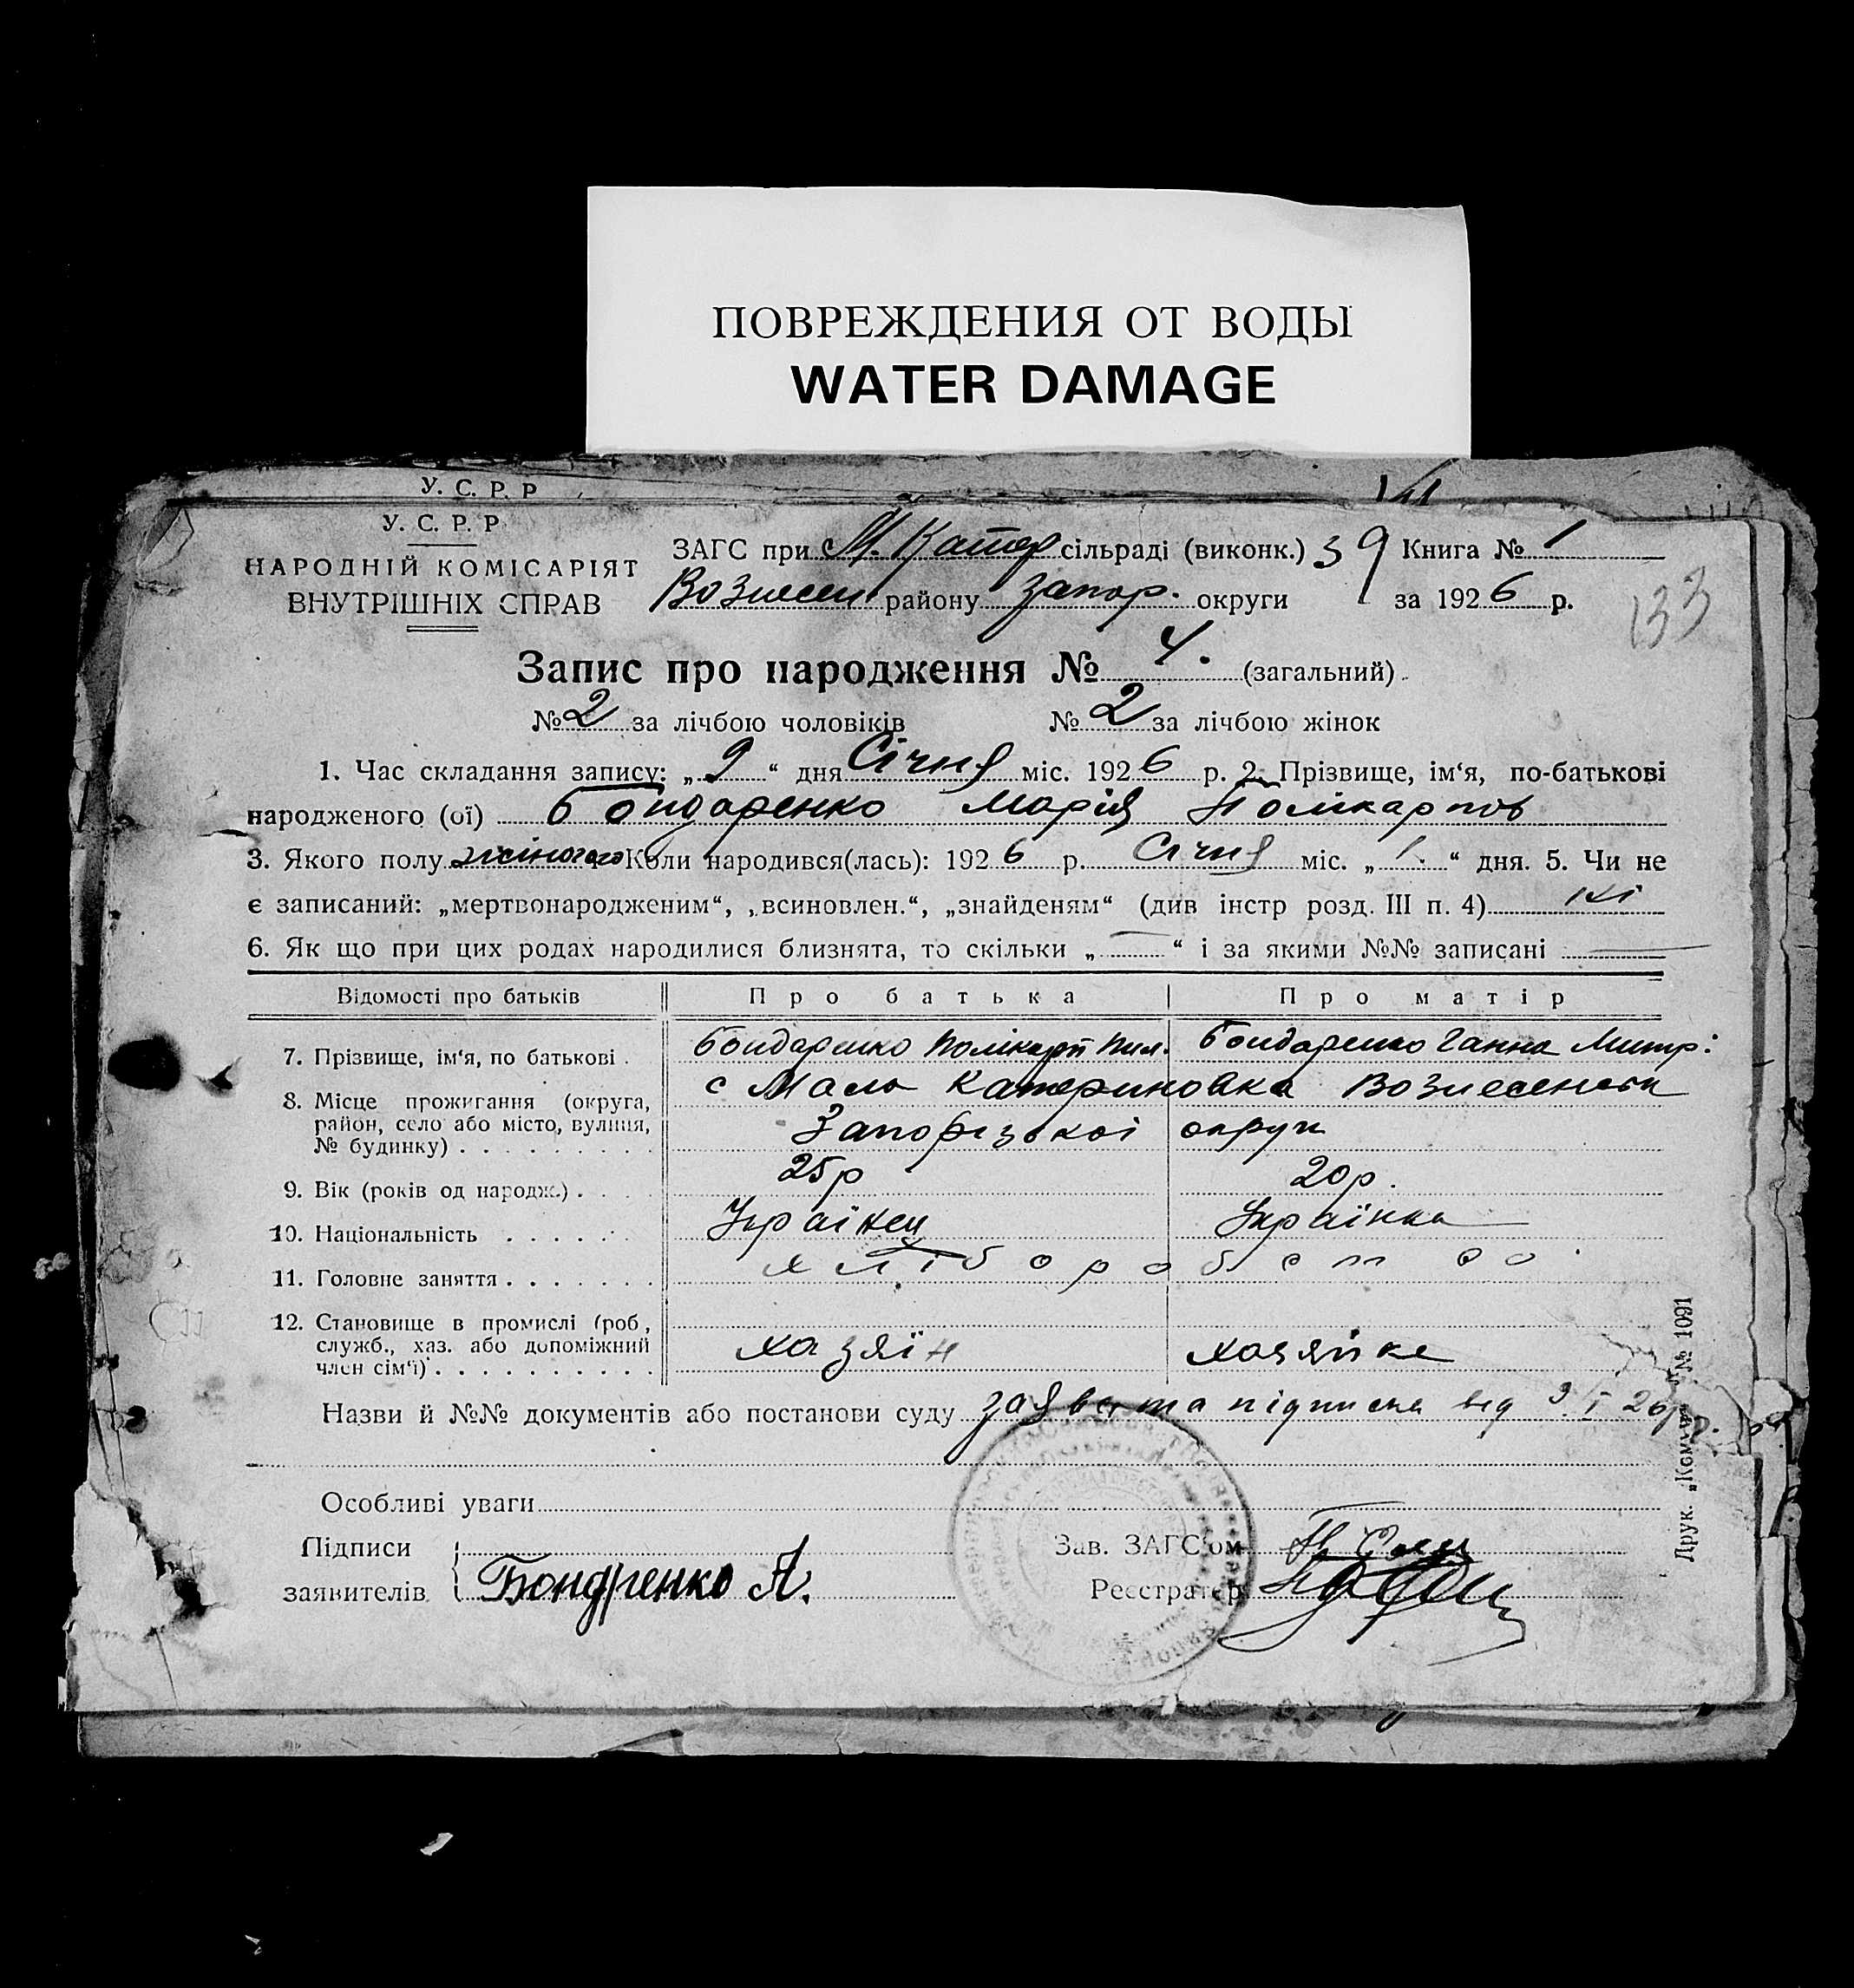 ПОВРЕЖДЕНИЯ ОТ ВОДЫ
WATER DAMAGE
У. С. Р. Р
У. С. Р. Р
НАРОДНІЙ КОМІСАРІЯТ
ВНУТРІШНІХ СПРАВ
ЗАГС при М. Катер сільраді (виконк.) 39 Книга № 1
Вознесен району Запор. округи за 1926 р.
133
Запис про народження № 4. (загальний)
№ 2 за лічбою чоловіків № 2 за лічбою жінок
1. Час складання запису: „9“ дня Січня міс. 1926 р. 2. Прізвище, ім‘я, по-батькові
народженого (ої) Бондаренко Марія Полікарпов
3. Якого полу жіночого 4 Коли народився(лась): 1926 р. Січня міс. „1.“ дня. 5. Чи не
є записаний: „мертвонародженим“, „всиновлен.“, „знайденям“ (див інстр розд. III п. 4) ні
6. Як що при цих родах народилися близнята, то скільки „—“ і за якими №№ записані —
Відомості про батьків Про батька Про матір
7. Прізвище, ім‘я, по батькові . Бондаренко Полікарп Пил. Бондаренко Ганна Митр:
8. Місце прожигання (округа, с Мало Катериновка Вознесенськ
район, село або місто, вулиця, Запорізької округи
№ будинку) . . . . . . . . .
9. Вік (років од народж.) . . . . 25р 20р.
10. Національність . . . . . . Українец Українка
11. Головне заняття . . . . . . . хліборобство
12. Становище в промислі (роб,
служб., хаз. або допоміжний хазяїн хазяйке
член сім‘ї) . . . . . . . . . .
Назви й №№ документів або постанови суду заява та підписка від 9/I 26р.
Особливі уваги
Підписи Зав. ЗАГС‘ом
заявителів Бондренко А. Реєстратер
Друк. „Комун № 1091